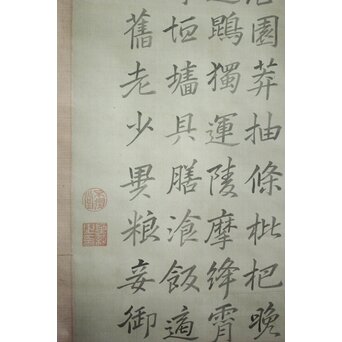 園莽抽條枇杷晚
鵾獨運陵摩絳霄
垣墻具膳湌飯適
舊老少異粮妾御